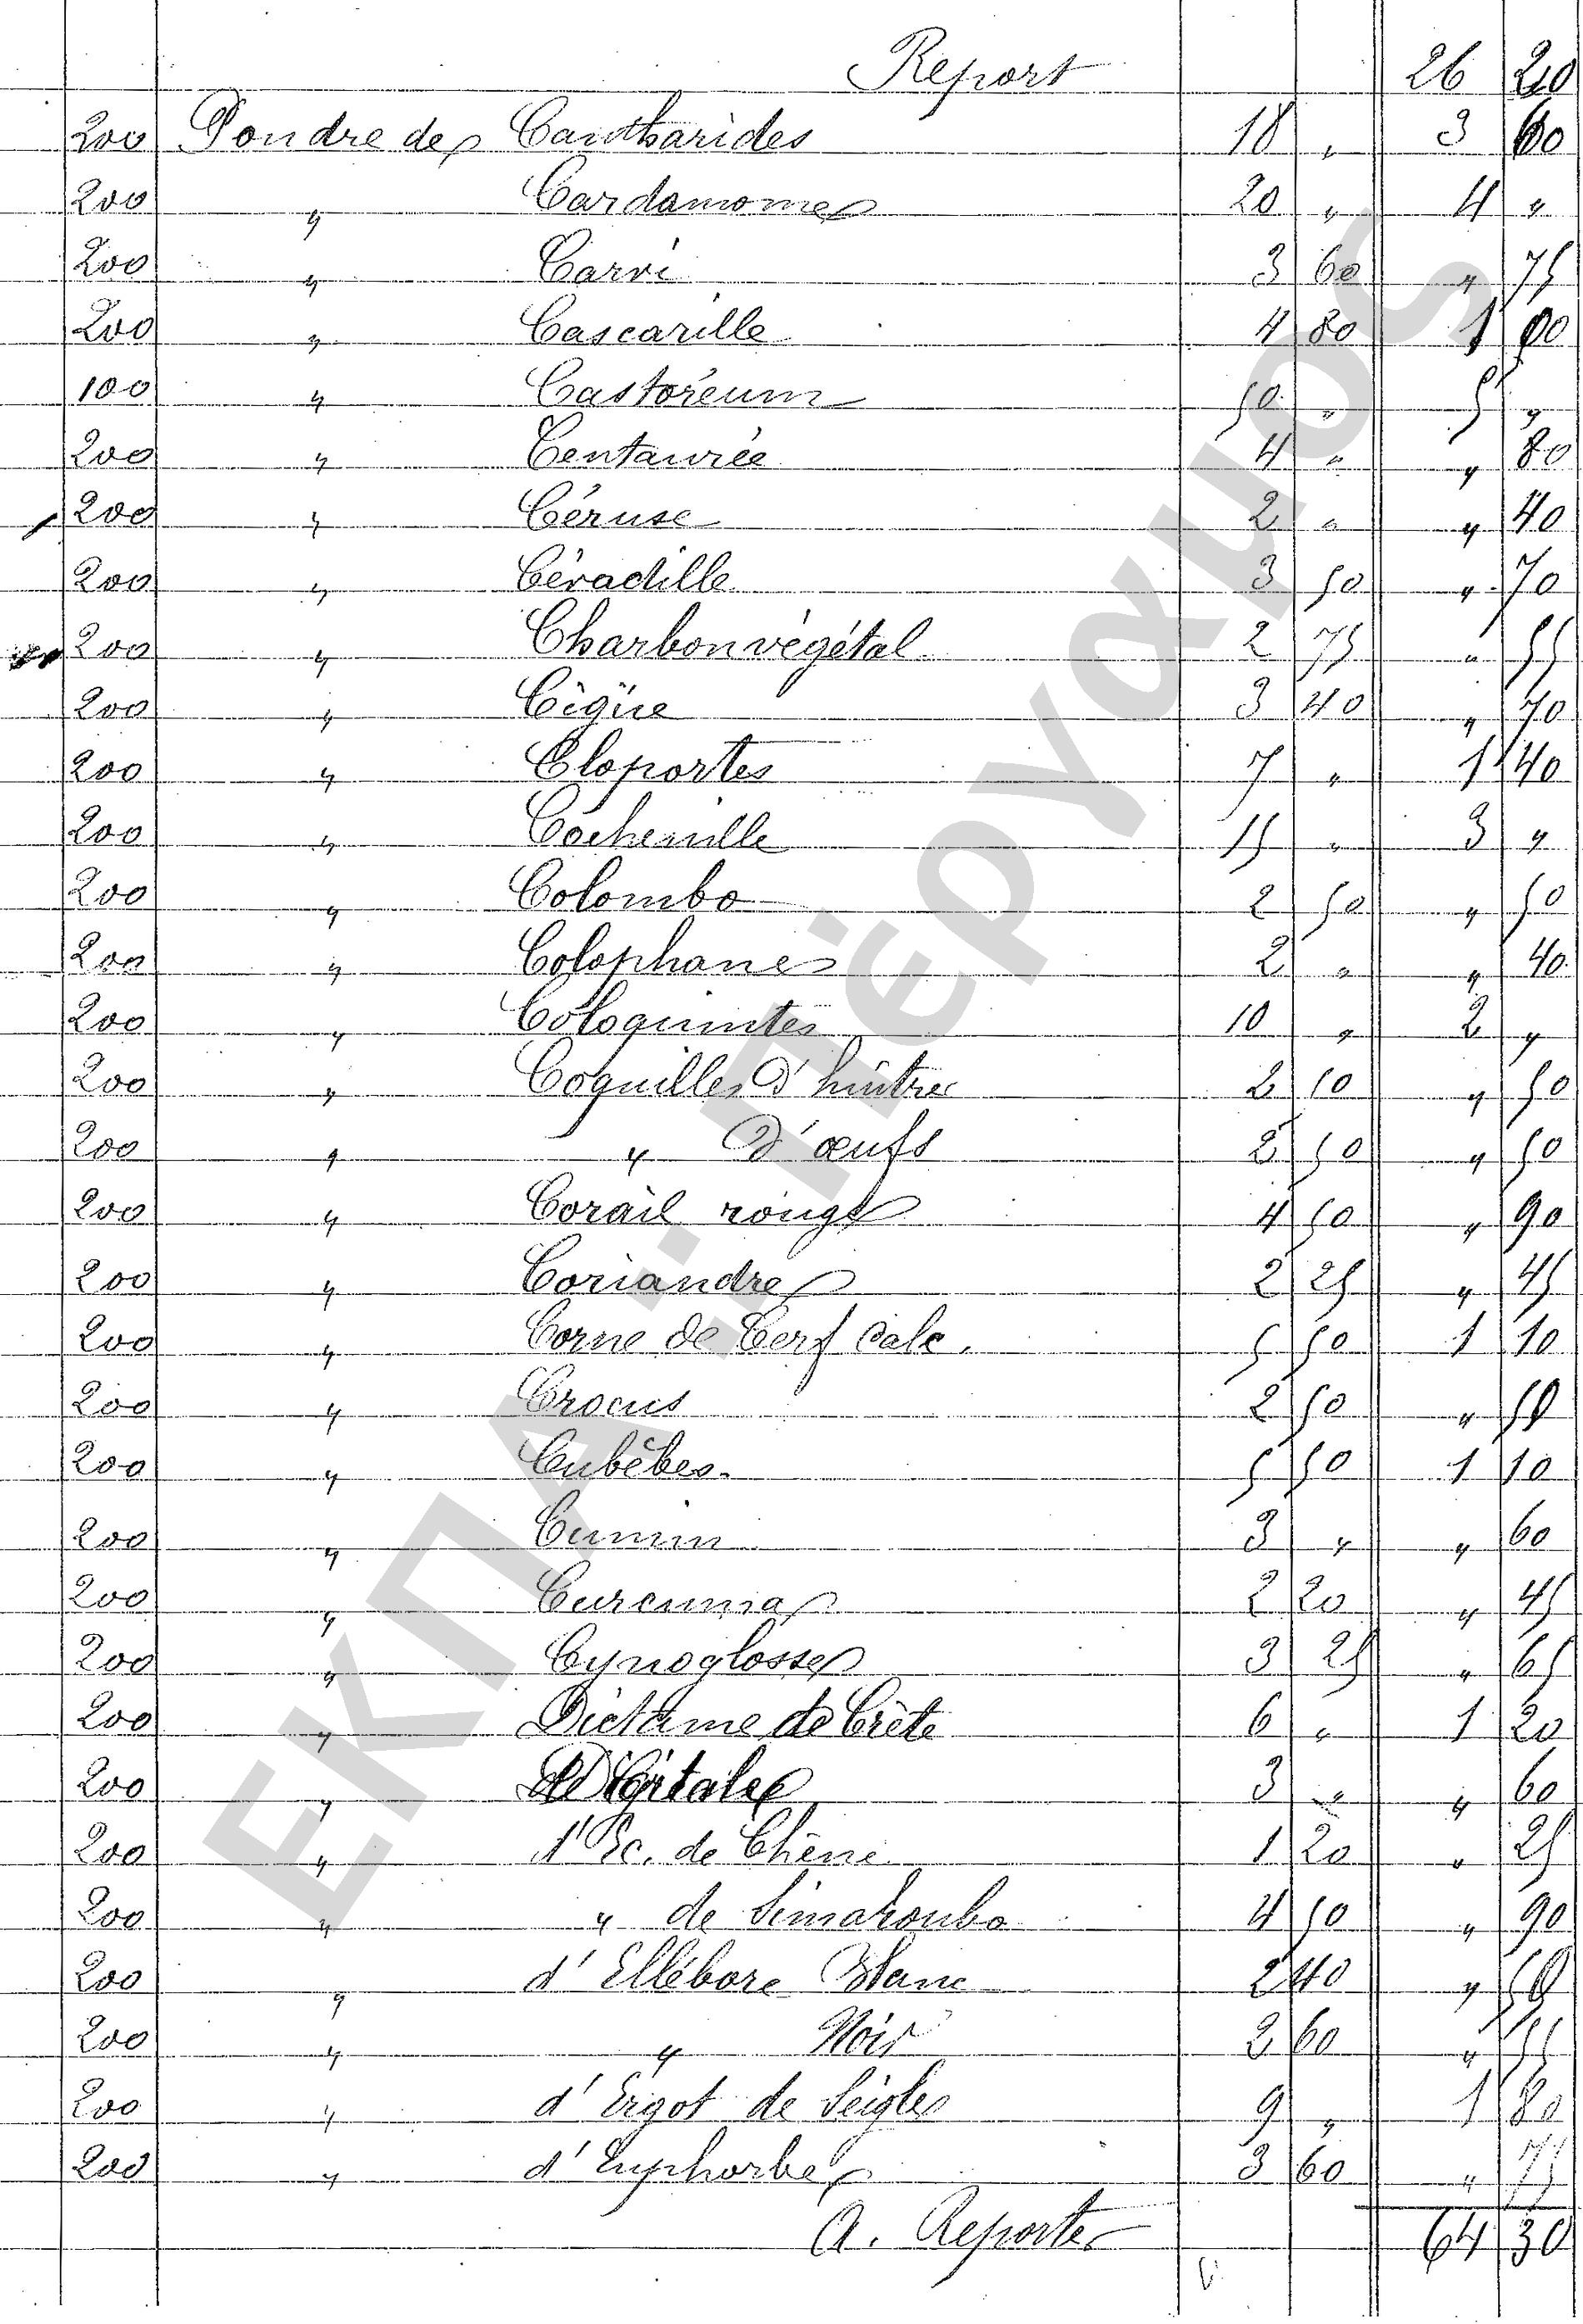 Report 26 20
200 Poudre de Cantharides 18 „ 3 60
200 „ Cardamome 20 „ 4 „
200 „ Carvi 3 60 „ 75
200 „ Cascarille 4 80 1 00
100 „ Castoréum 50 „ 5 „
200 „ Centaurée 4 „ „ 80
200 „ Céruse 2 „ „ 40
200 „ Cévadille 3 50 „ 70
200 „ Charbon végétal 2 75 „ 55
200 „ Cigüe 3 40 „ 70
200 „ Cloportes 7 „ 1 40
200 „ Cochenille 15 „ 3 „
200 „ Colombo 2 50 „ 50
200 „ Colophane 2 „ „ 40
200 „ Coloquintes 10 „ 2 „
200 „ Coquilles d'huitre 2 50 „ 50
200 „ „ d'œufs 2 50 „ 50
200 „ Corail rouge 4 50 „ 90
200 „ Coriandre 2 25 „ 45
200 „ Corne de Cerf Calc. 5 50 1 10
200 „ Crocus 2 50 „ 50
200 „ Cubèbes 5 50 1 10
200 „ Cumin 3 „ „ 60
200 „ Curcuma 2 20 „ 45
200 „ Cynoglosse 3 25 „ 65
200 „ Dictame de Crète 6 „ 1 20
200 „ Digitale 3 „ „ 60
200 „ d'Ec. de Chêne 1 20 „ 25
200 „ „ de Simarouba 4 50 „ 90
200 „ d'Ellébore Blanc 2 40 „ 50
200 „ „ Noir 2 60 „ 55
200 „ d'Ergot de Seigle 9 „ 1 80
200 „ d'Euphorbe 3 60 „ 75
A. Reporter 64 30
ΕΚΠΑ.: Πέργαμος